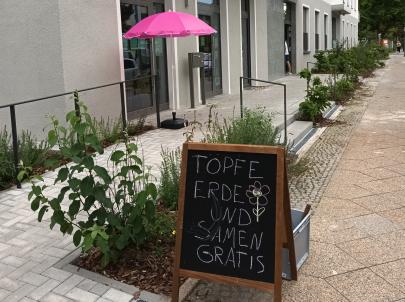 TÖPFE
ERDE
UND
SAMEN
GRATIS